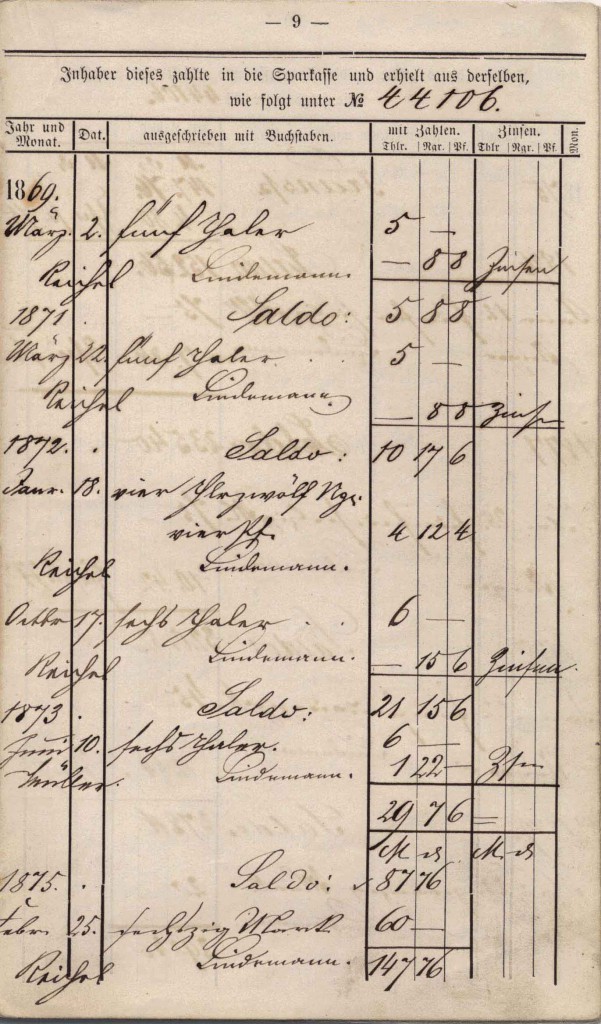 — 9 —
Inhaber dieses zahlte in die Sparkasse und erhielt aus derselben,
wie folgt unter № 44106.
Jahr und Monat. Dat. ausgeschrieben mit Buchstaben. mit Zahlen. Zinsen. Mon.
Thlr. Ngr. Pf. Thlr Ngr. Pf.
1869.
März. 2. fünf Thaler 5 —
— 8 8 Zinsen
Reichel Lindemann.
1871. Saldo: 5 8 8
März 22. fünf Thaler . . 5 —
Reichel Lindemann.
— 8 8 Zinsen
1872. . Saldo: 10 17 6
Janr. 18. vier Thlr zwölf Ngr.
vier Pf. 4 12 4
Reichel Lindemann.
Octbr 17. sechs Thaler . . 6 —
Reichel Lindemann. — 15 6 Zinsen.
1873 . Saldo: 21 15 6
Juni 10. sechs Thaler. 6 —
Müller. Lindemann. 1 22 — Zsn
29 7 6 =
M. d M. d
1875. . Saldo: 87 76
Febr. 25. sechszig Mark 60 —
Reichel Lindemann. 147 76